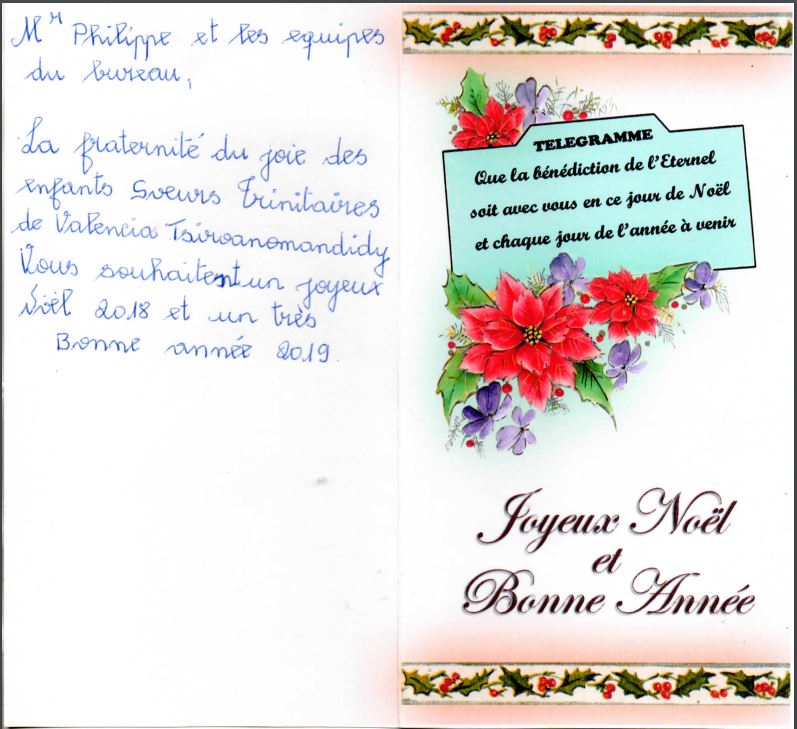 Mr Philippe et les equipes
du bureau,
La fraternité du joie des
enfants Sœurs Trinitaires
de Valencia Tsiroanomandidy
Vous souhaitent un joyeux
Noël 2018 et un très
Bonne année 2019.
TELEGRAMME
Que la bénédiction de l'Eternel
soit avec vous en ce jour de Noël
et chaque jour de l'année à venir
Joyeux Noël
et
Bonne Année